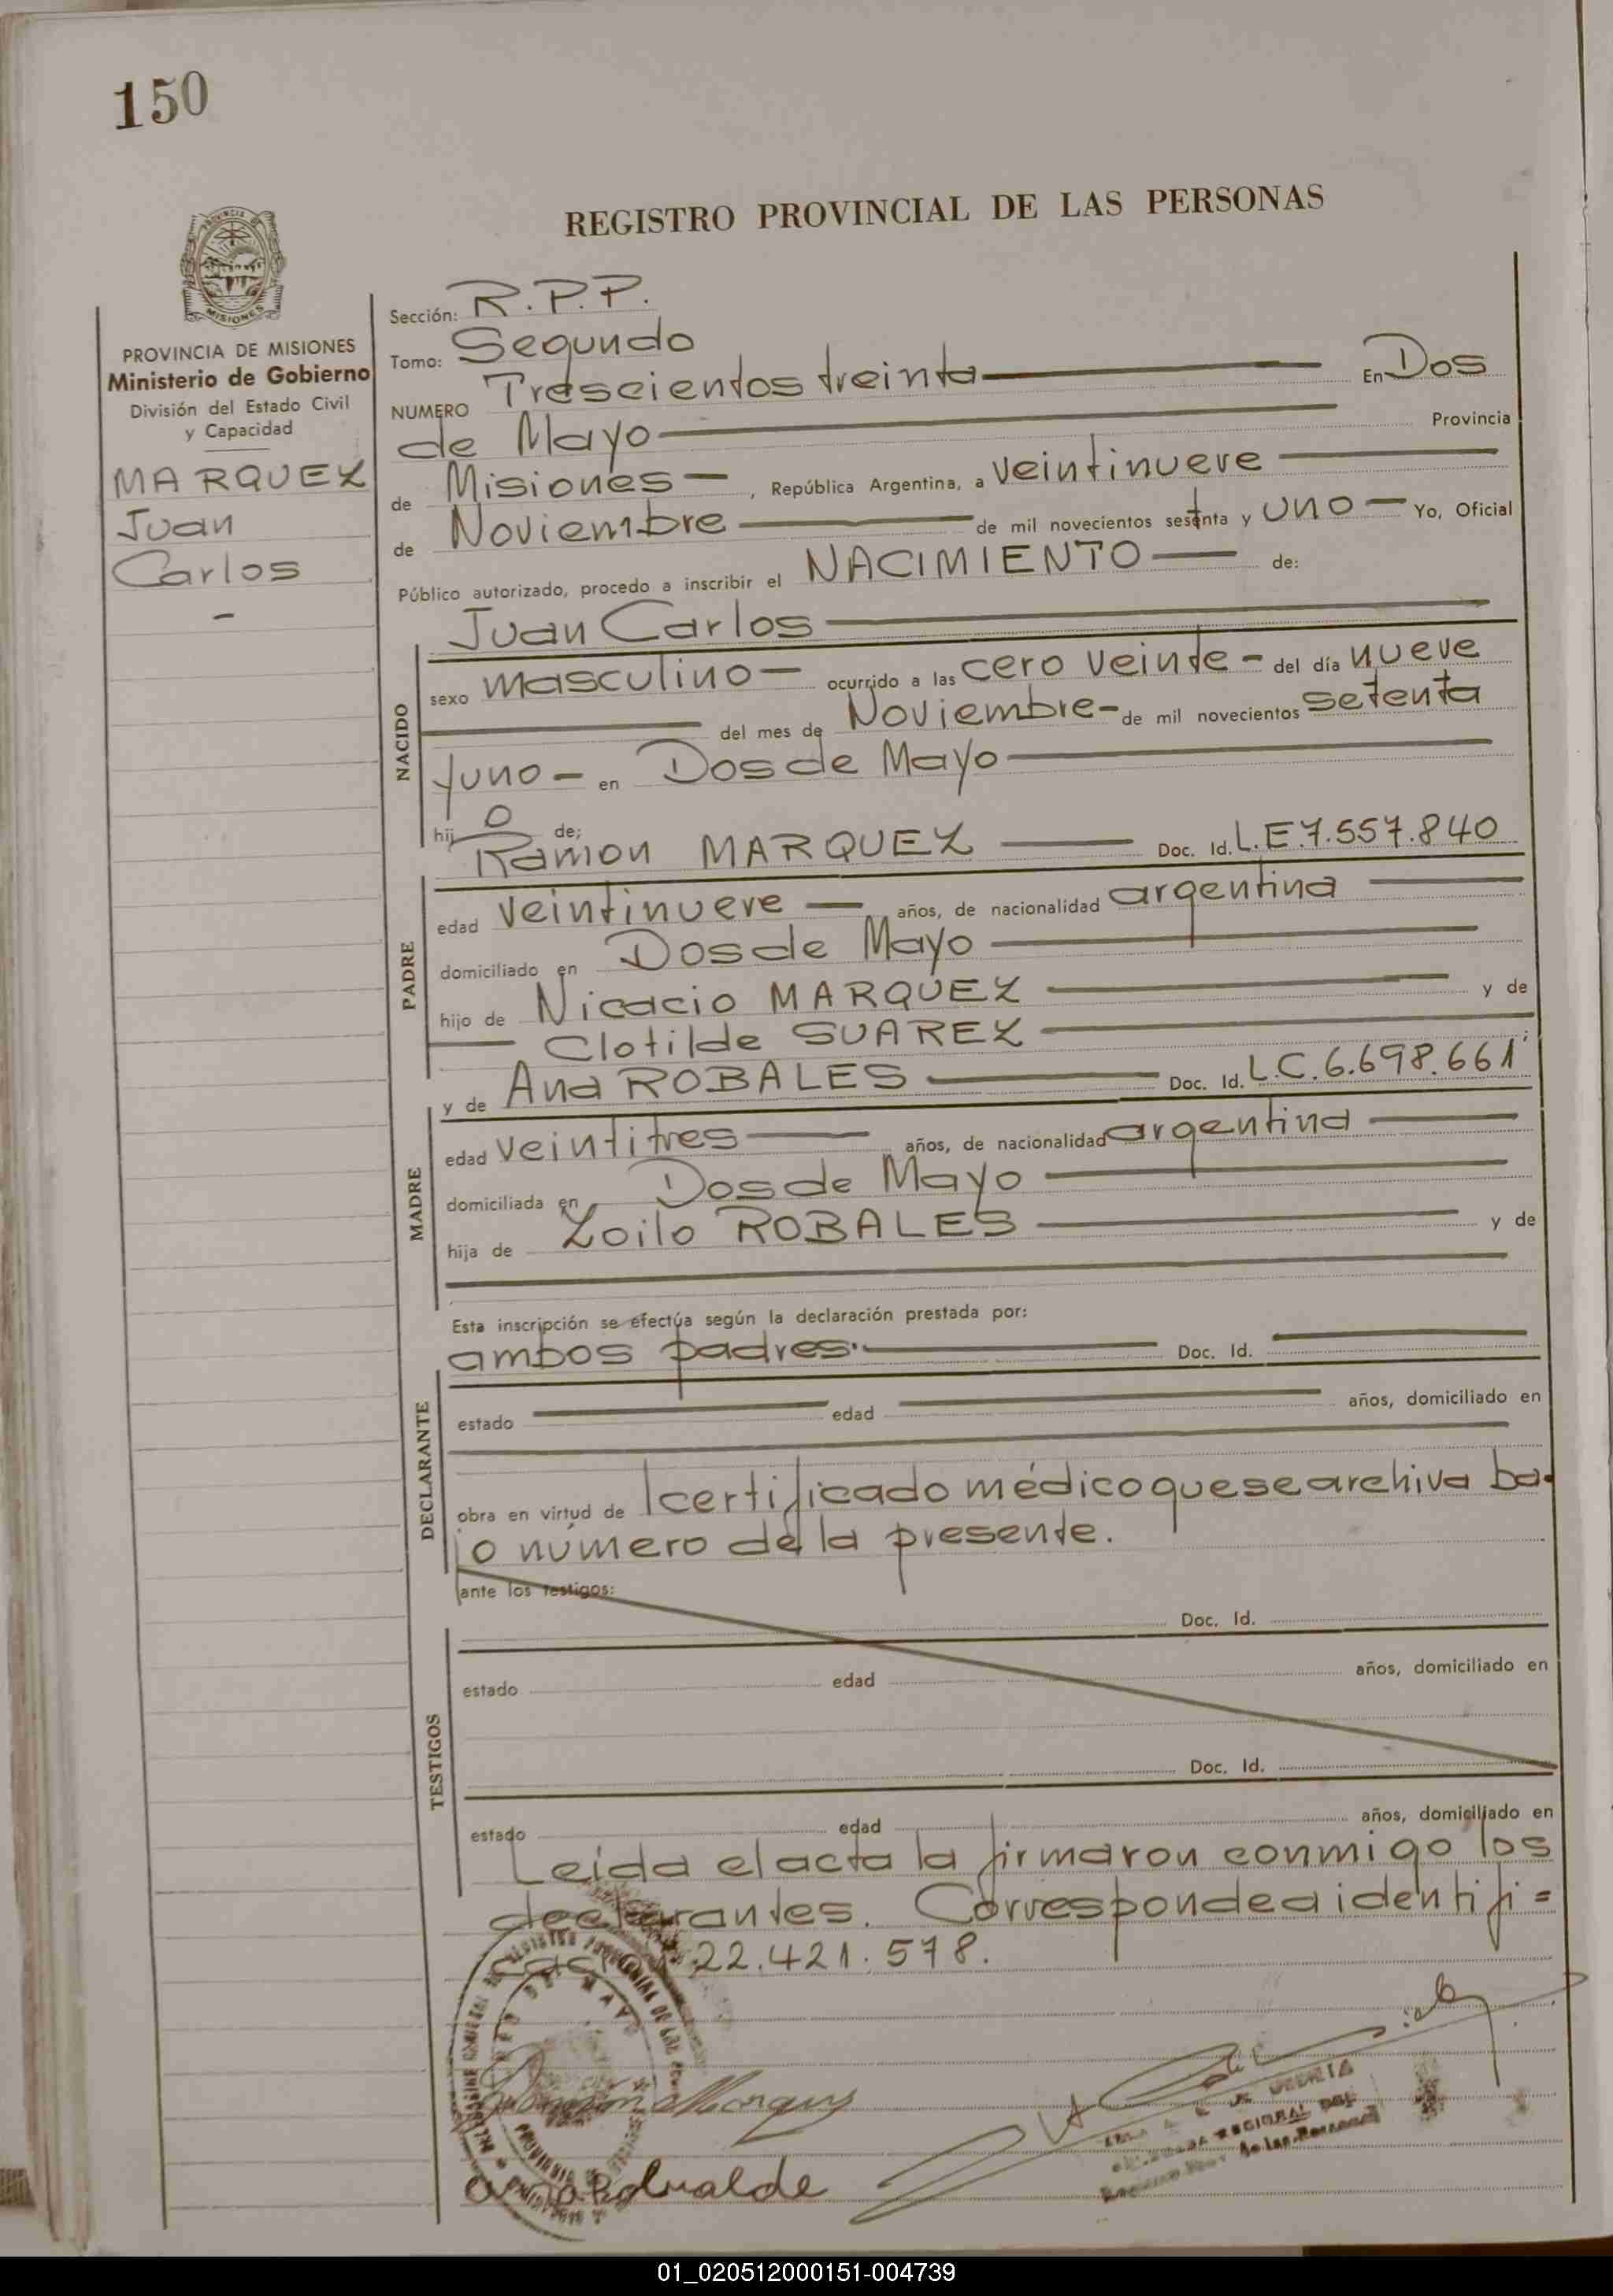 150
REGISTRO PROVINCIAL DE LAS PERSONAS
PROVINCIA DE MISIONES
Ministerio de Gobierno
División del Estado Civil
y Capacidad
MARQUEZ
Juan
Carlos
-
Sección: R.P.P.
Tomo: Segundo
NUMERO Trescientos treinta En Dos
de Mayo Provincia
de Misiones - , República Argentina, a veintinueve
de Noviembre de mil novecientos setenta y uno - Yo, Oficial
Público autorizado, procedo a inscribir el NACIMIENTO de:
Juan Carlos
NACIDO
sexo masculino - ocurrido a las cero veinte - del día nueve
del mes de Noviembre - de mil novecientos setenta
y uno - en Dos de Mayo
hijo de:
PADRE
Ramon MARQUEZ Doc. Id. L.E.7.557.840
edad veintinueve años, de nacionalidad argentina
domiciliado en Dos de Mayo
hijo de Nicacio MARQUEZ y de
Clotilde SUAREZ
MADRE
y de Ana ROBALES Doc. Id. L.C.6.698.661
edad veintitres años, de nacionalidad argentina
domiciliada en Dos de Mayo
hija de Zoilo ROBALES y de
Esta inscripción se efectúa según la declaración prestada por:
DECLARANTE
ambos padres. Doc. Id.
estado edad años, domiciliado en
obra en virtud de lcertificado médico que se archiva ba-
jo número de la presente.
ante los testigos:
TESTIGOS
Doc. Id.
estado edad años, domiciliado en
Doc. Id.
estado edad años, domiciliado en
Leida el acta la firmaron conmigo los
declarantes. Corresponde a identifi=
22.421.578.
01_020512000151-004739